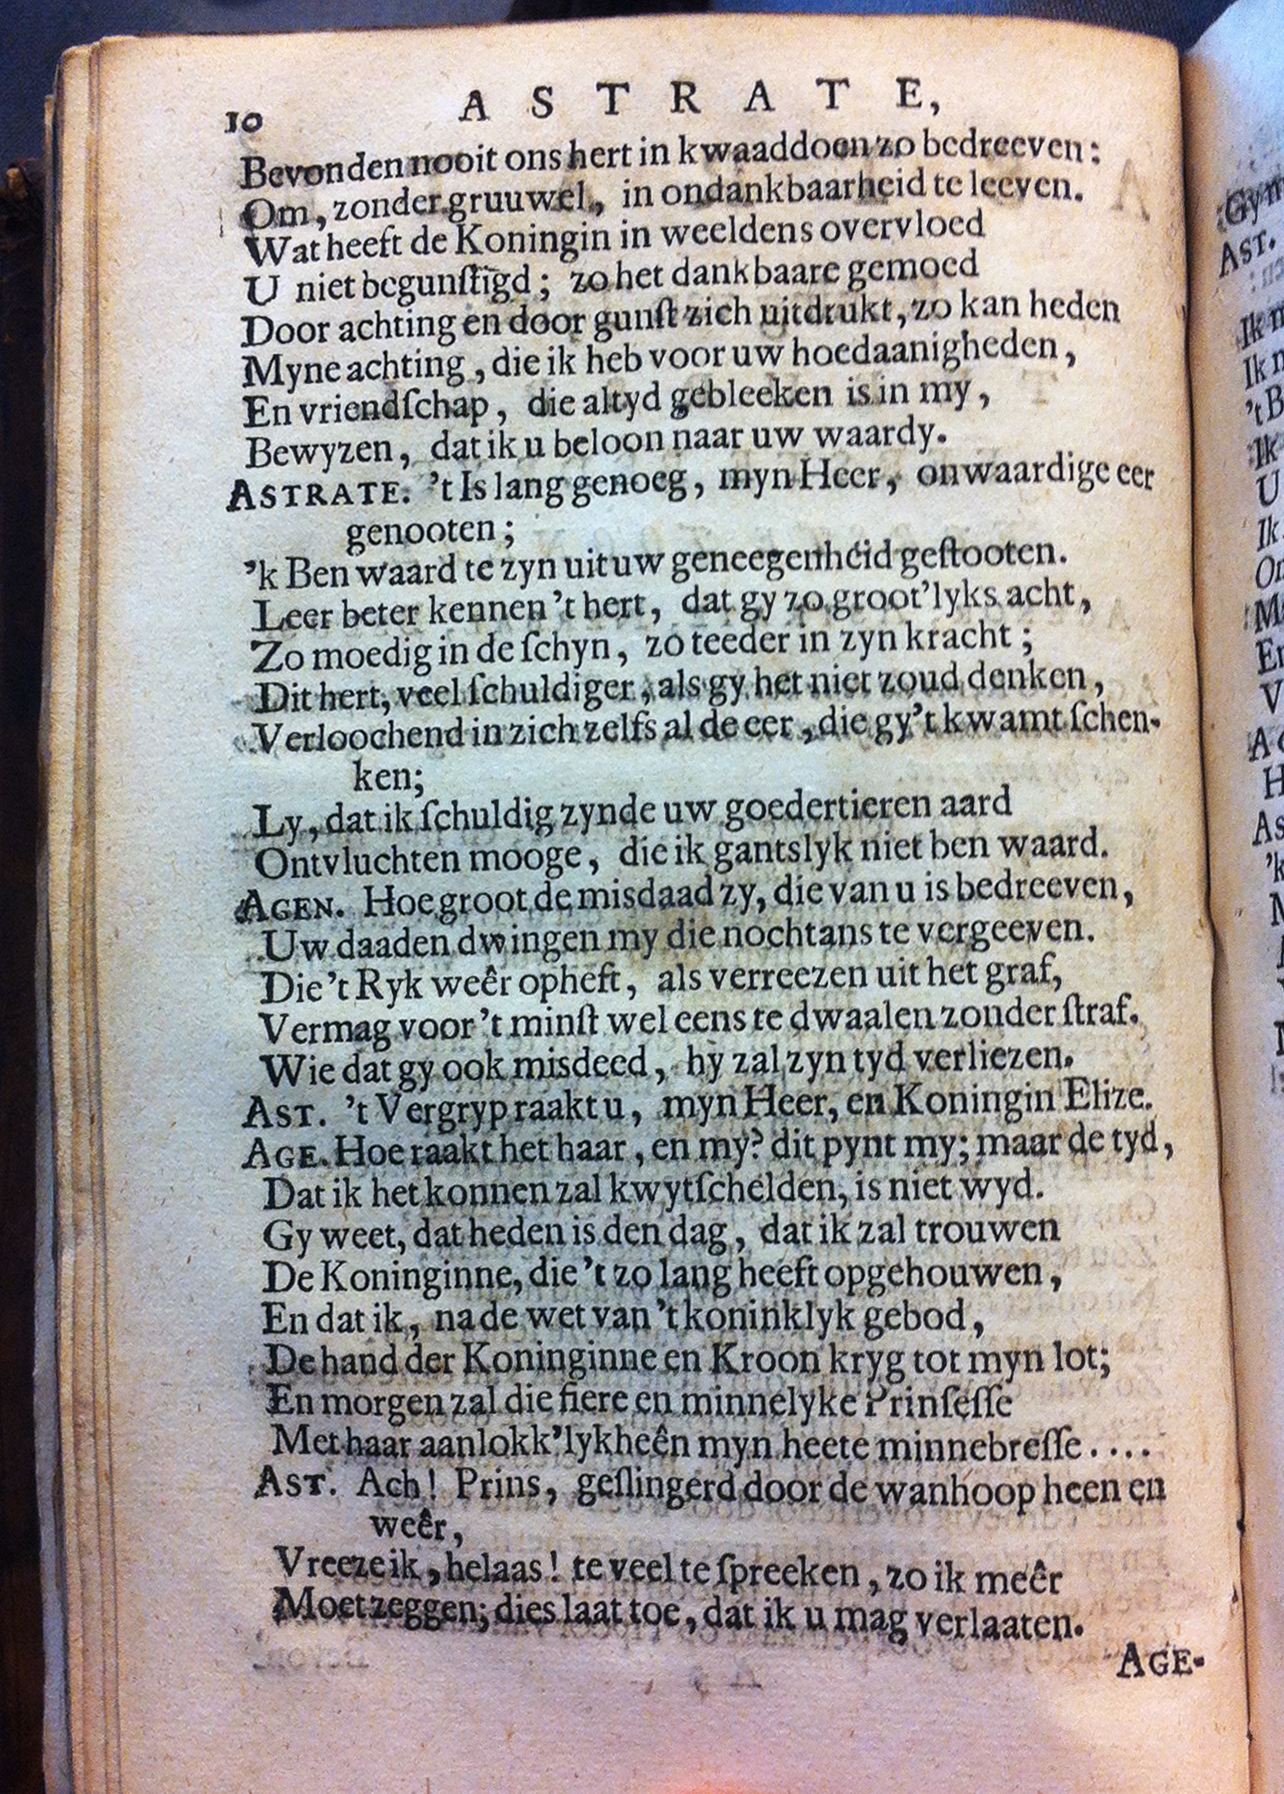 10 ASTRATE,
Bevonden nooit ons hert in kwaaddoen zo bedreeven:
Om, zonder gruuwel, in ondankbaarheid te leeven.
Wat heeft de Koningin in weeldens overvloed
U niet begunſtigd; zo het dankbaare gemoed
Door achting en door gunſt zich uitdrukt, zo kan heden
Myne achting, die ik heb voor uw hoedaanigheden,
En vriendſchap, die altyd gebleeken is in my,
Bewyzen, dat ik u beloon naar uw waardy.
ASTRATE. 't Is lang genoeg, myn Heer, onwaardige eer
genooten;
'k Ben waard te zyn uit uw geneegenheid geſtooten.
Leer beter kennen 't hert, dat gy zo groot'lyks acht,
Zo moedig in de ſchyn, zo teeder in zyn kracht;
Dit hert, veel ſchuldiger, als gy het niet zoud denken,
Verloochend in zich zelfs al de eer, die gy 't kwamt ſchen-
ken;
Ly, dat ik ſchuldig zynde uw goedertieren aard
Ontvluchten mooge, die ik gantslyk niet ben waard.
AGEN. Hoe groot de misdaad zy, die van u is bedreeven,
Uw daaden dwingen my die nochtans te vergeeven.
Die 't Ryk weêr opheft, als verreezen uit het graf,
Vermag voor 't minſt wel eens te dwaalen zonder ſtraf.
Wie dat gy ook misdeed, hy zal zyn tyd verliezen.
AST. 't Vergryp raakt u, myn Heer, en Koningin Elize.
AGE. Hoe raakt het haar, en my? dit pynt my; maar de tyd,
Dat ik het konnen zal kwytſchelden, is niet wyd.
Gy weet, dat heden is den dag, dat ik zal trouwen
De Koninginne, die 't zo lang heeft opgehouwen,
En dat ik, na de wet van 't koninklyk gebod,
De hand der Koninginne en Kroon kryg tot myn lot;
En morgen zal die fiere en minnelyke Prinſeſſe
Met haar aanlokk'lykheên myn heete minnebreſſe....
AST. Ach! Prins, geſlingerd door de wanhoop heen en
weêr,
Vreeze ik, helaas! te veel te ſpreeken, zo ik meêr
Moet zeggen; dies laat toe, dat ik u mag verlaaten.
AGE-